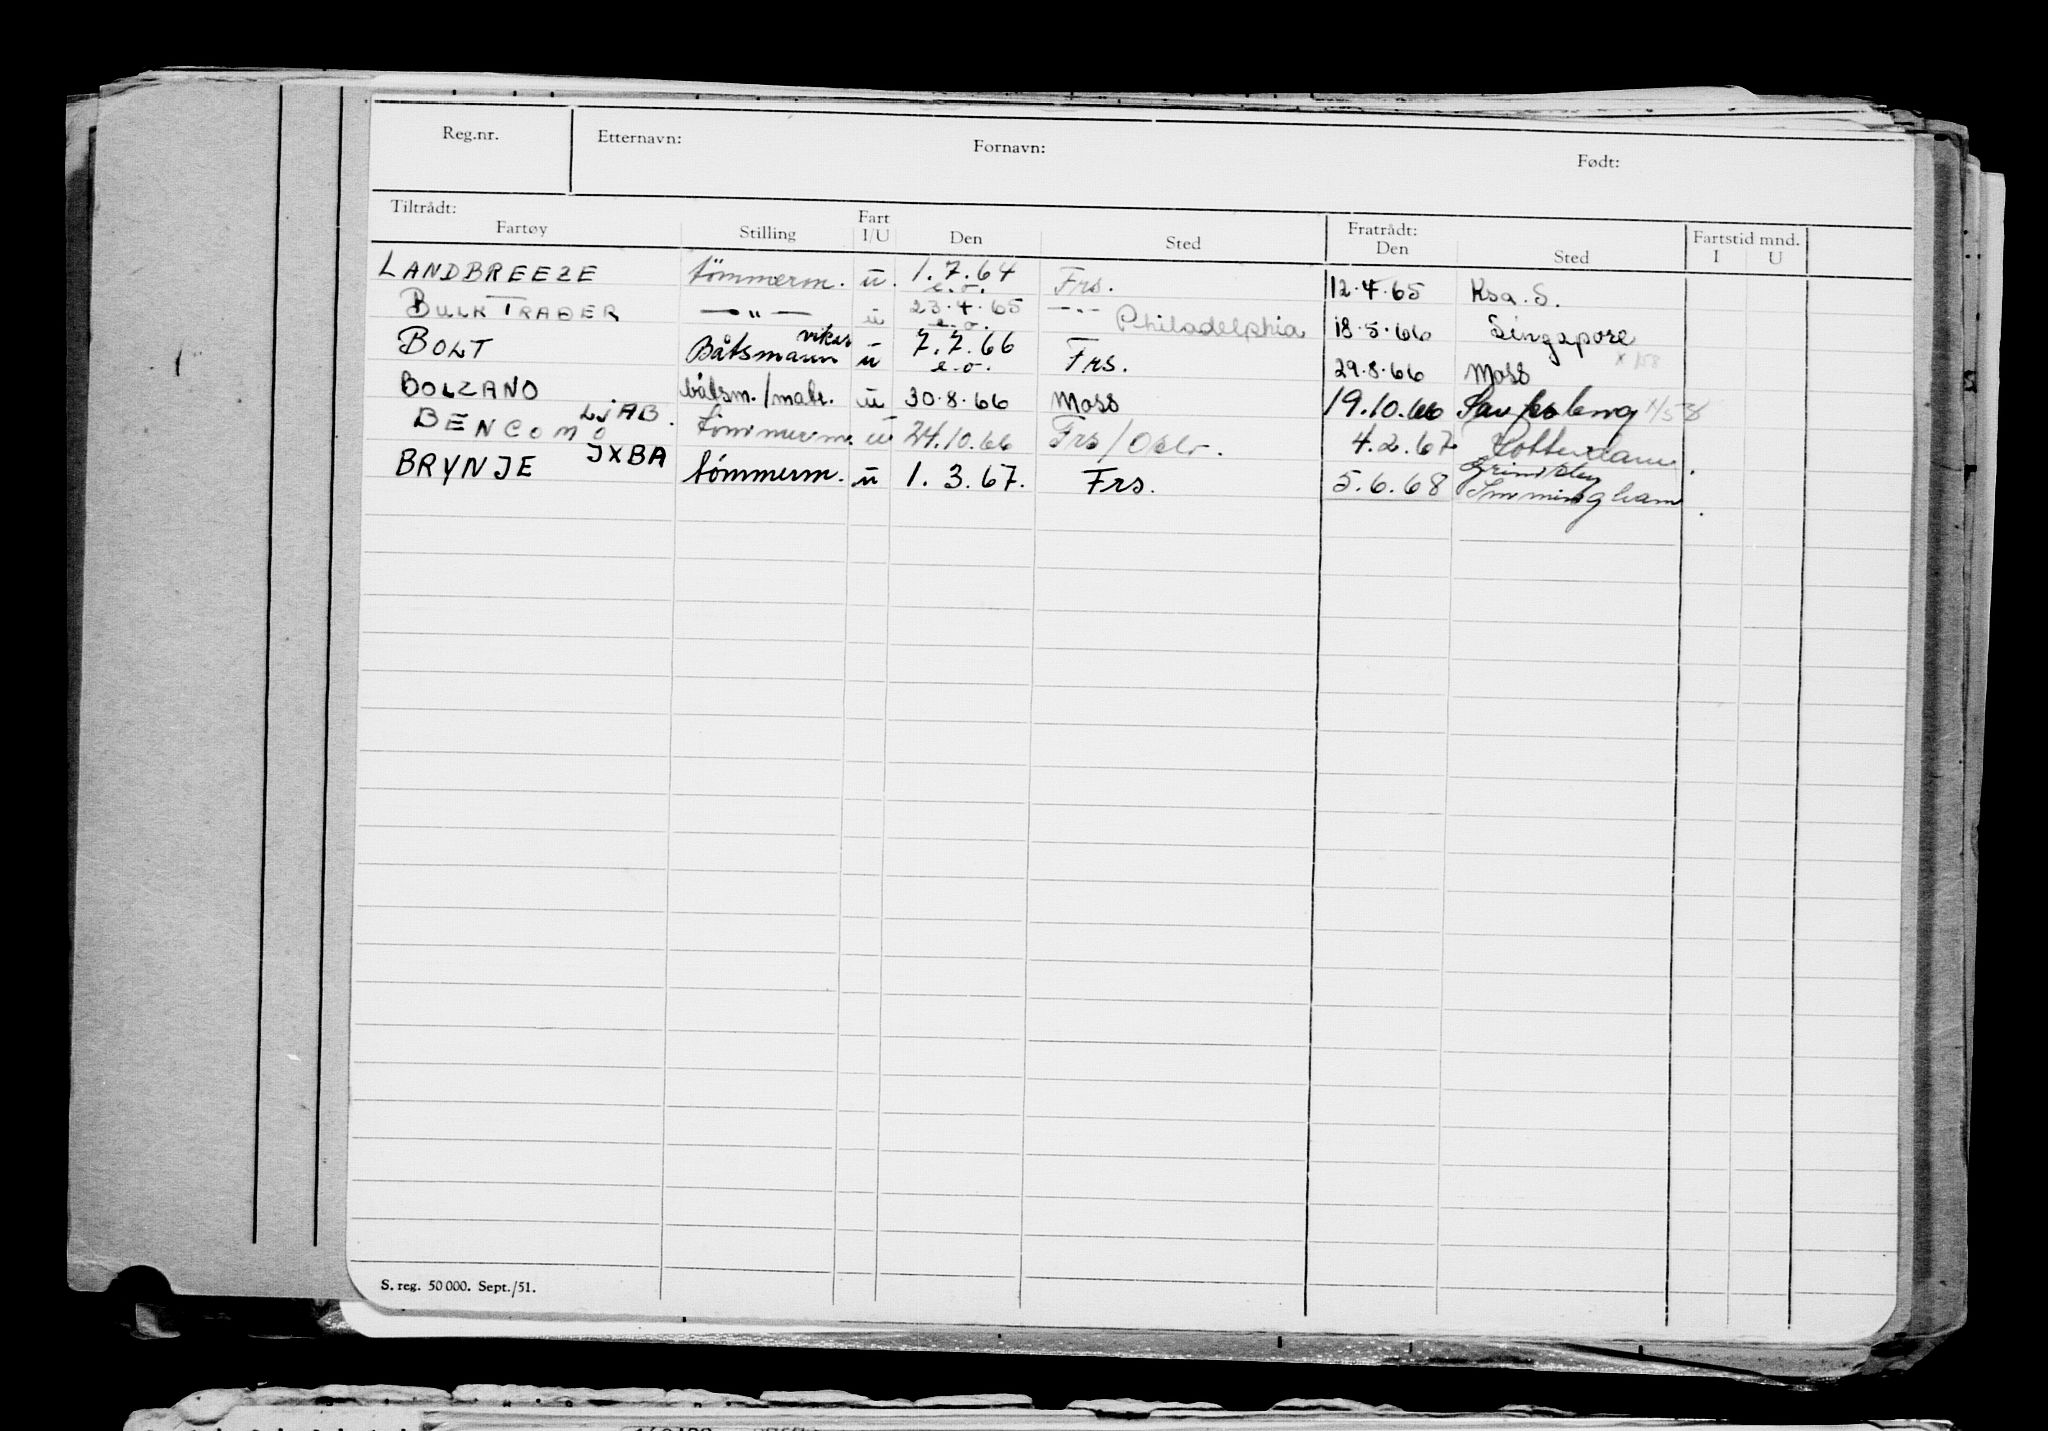 Reg.nr. Etternavn: Fornavn: Født:
Tiltrådt: Fratrådt: Fartstid mnd.
Fartøy Stilling Fart I/U Den Sted Den Sted I U
LANDBREEZE tömmerm. u. 1.7.64 e.o. Frs. 12.4.65 Ksa. S.
BULK TRADER —„— u 23.4.65 e.o. —„— Philadelphia 18.5.66 Singapore
BOLT Båtsmann vikar u 7.7.66 e.o. Frs. 29.8.66 Moss
BOLZANO båtsm./matr. u 30.8.66 Moss 19.10.66
BENCOMO LJAB. Tömmerm. u 24.10.66 Frs/Oslo. 4.2.67 Rotterdam.
BRYNJE JXBA tömmerm. u 1.3.67. Frs. 5.6.68 Immingham.
S. reg. 50 000. Sept./51.